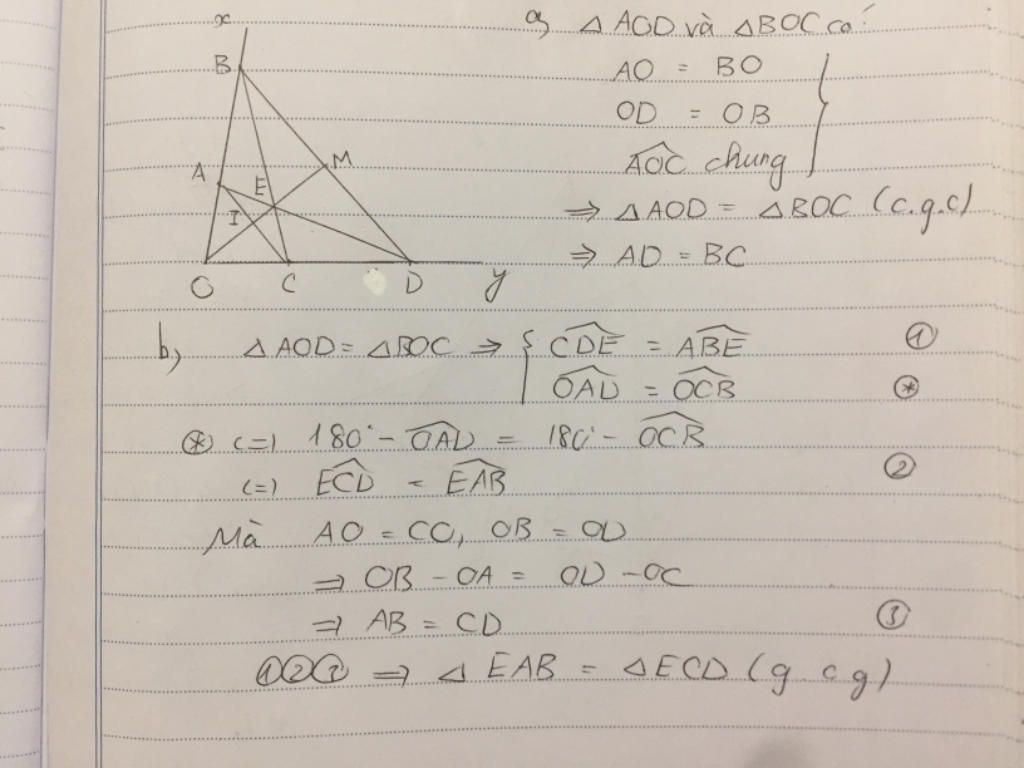 x
B
A
E
M
I
O
C
D
y
a, △AOD và △BOC có
AO = BO
OD = OB
AOC chung
⇒ △AOD = △BOC (c.g.c)
⇒ AD = BC
b, △AOD = △BOC ⇒ { CDE = ABE ①
OAD = OCB ⊛
⊛ (=) 180° - OAD = 180° - OCB
(=) ECD = EAB ②
Mà AO = CO, OB = OD
⇒ OB - OA = OD - OC
⇒ AB = CD ③
①②③ ⇒ △ EAB = △ECD (g c g)